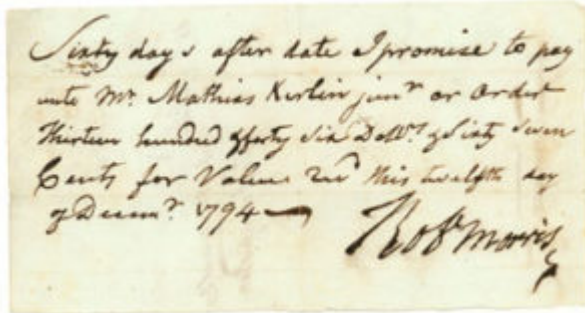 Sixty days after date I promise to pay
unto Mr. Mathias Kerlin junr. or Order
Thirteen hundred & forty Six Dollrs. & Sixty Seven
Cents for Value recd. this twelfth day
of Decemr. 1794
Robt Morris